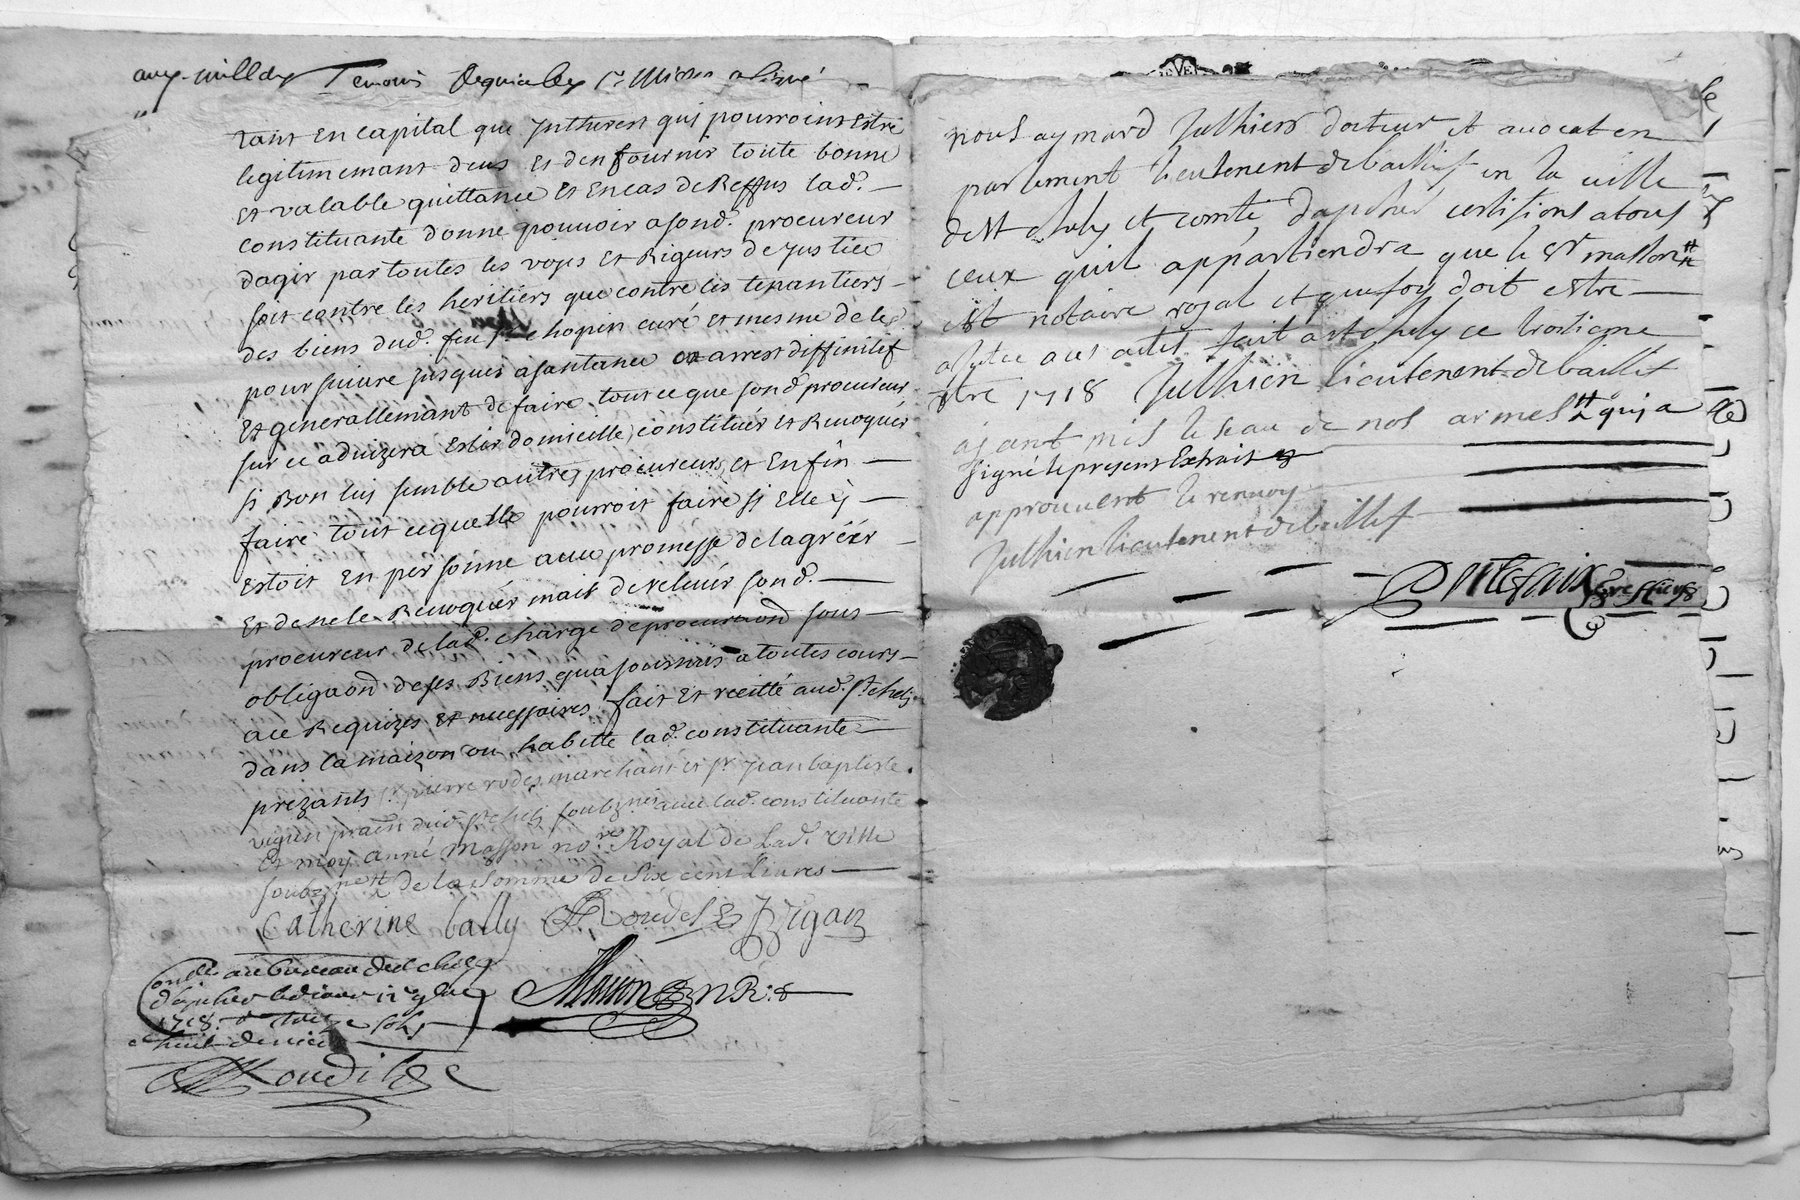 tant en capital que Intherest qui pourroint estre
legitimemant deus et den fournir toute bonne
et valable quittance et en cas de Reffus lad.e
constituante donne pouvoir a sond. procureur
dagir par toutes les voyes et Rigeurs de justice
soit contre les heritiers que contre les tenantiers
des biens dud. feu sr. chopin curé et mesme de les
poursuivre jusques a santance ou arrest diffinitef
et generallemant de faire tout ce que sond. procureur
sur ce advizera eslir domicille constituér et Revoquér
si bon luy semble autres procureurs et enfin
faire tout ce quelle pourroit faire si elle y
estoit en personne avec promesse de lagréér
et de ne le Revoquér mais de relevér sond.
procureur de lad. charge de procuraõn sous
obligaõn de ses Biens qua soumis a toutes cours
a ce Requizes et necessaires fait et recitté aud. st. chely
dans la maizon ou habitte lad. constituante
prezants sr. pierre rodes marchant et sr. jean baptiste
vigan praẽn dud. st chely soubznés avec lad. constituante
et moy anné Masson no.re Royal de Lad. ville
soubz.né de la somme de six cent Livres
Catherine bally Roudes Vigan
au bureau de st chely
dapcher
1718. sols
huit deniers
Masson N R.
nous aymard Julhien docteur et avocat en
parlement lieutenent de baillif en la ville
de st chely et comté dapcher certifions a tous
ceux quil appartiendra que le sr masson
est notaire royal et que foy doit estre
a ses actes fait a st chely ce
1718 Julhien lieutenent de baillif
ajant mis le seau de nos armes qui a
signé le present Extrait
approuvent le renvoy
Julhien lieutenent de baillif
greffier